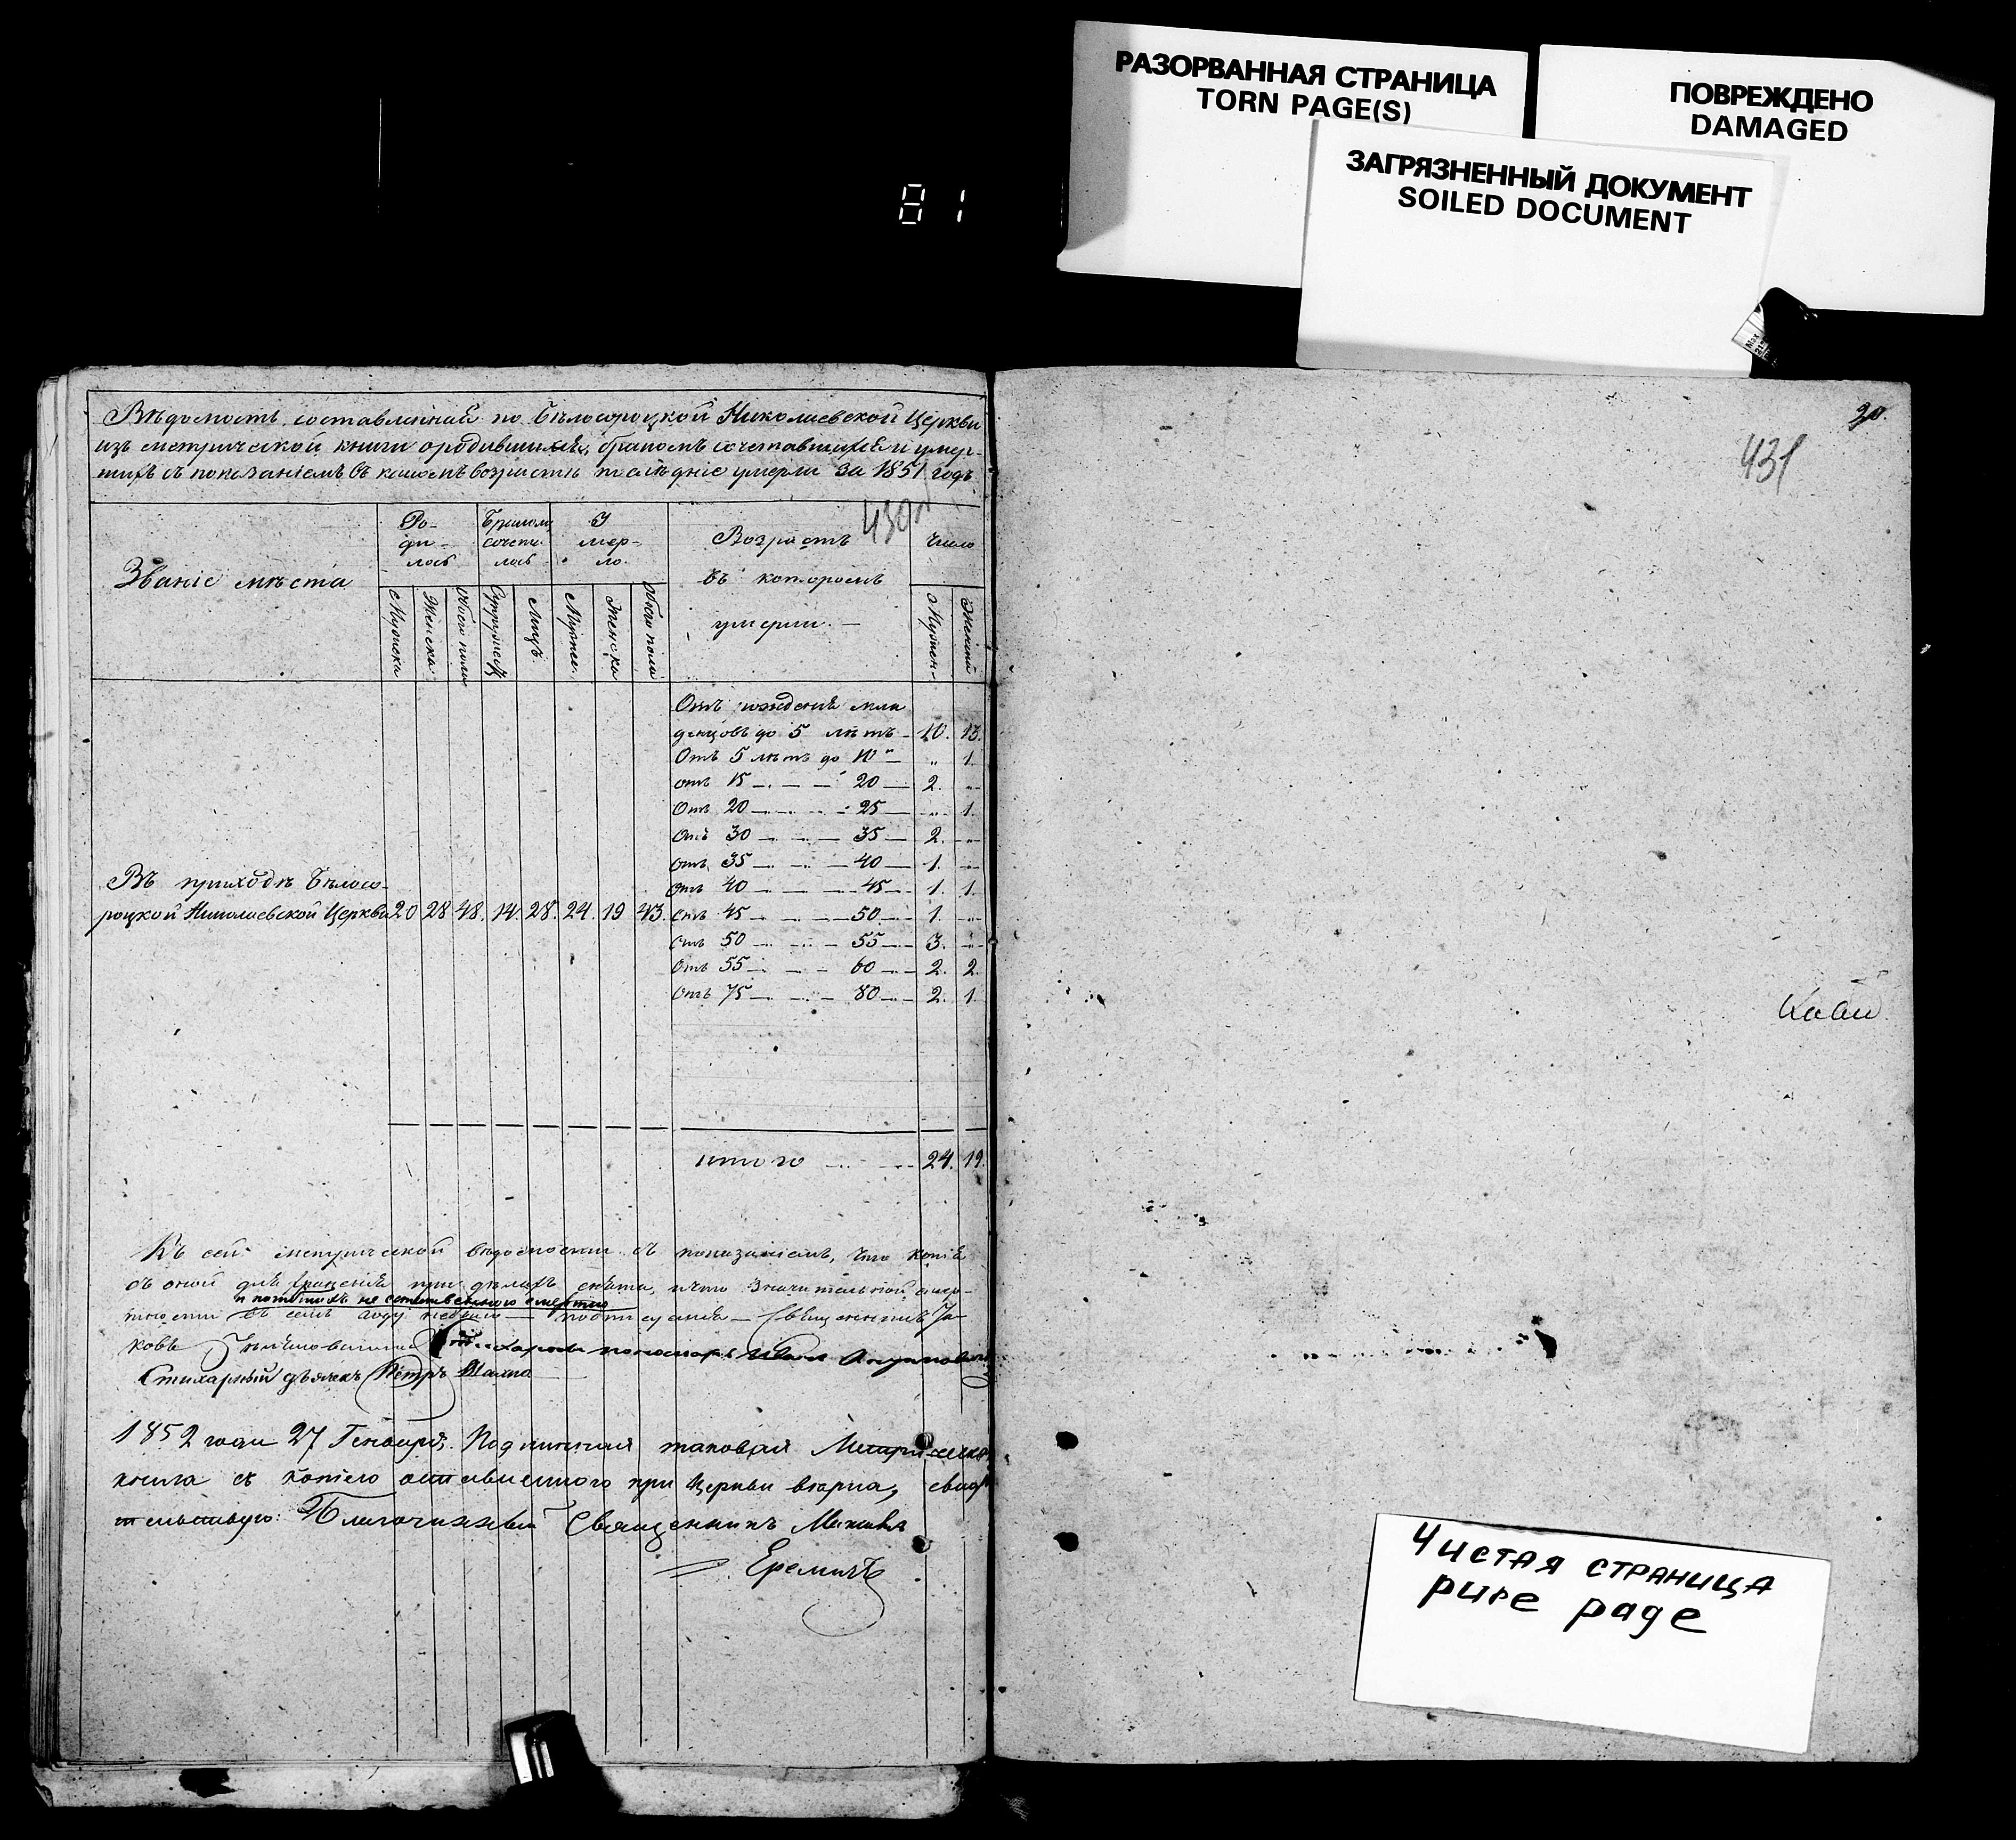 РАЗОРВАННАЯ СТРАНИЦА
TORN PAGE(S)
ПОВРЕЖДЕНО
DAMAGED
ЗАГРЯЗНЕННЫЙ ДОКУМЕНТ
SOILED DOCUMENT
81
Вѣдомость составленная по Бѣлосороцкой Николаевской Церкви
изъ метрической книги о родившихся, бракомъ сочетавшихся и умер-
шихъ съ показаніемъ въ какомъ возрастѣ послѣдніе умерли за 1851 годъ
430
Званіе мѣста
Ро-
ди-
лось
Бракомъ
сочета-
лось
У
мер-
ло.
Возрастъ
въ которомъ
умерли.
Число
Мужска
Женска
Обоего пола
Супружест
Лицъ
Мужск.
Женска
Обоего пола
Мужск-
Женска
Отъ рожденія мла
денцовъ до 5 лѣтъ - 10. 13.
Отъ 5 лѣтъ до 10 " — " 1.
отъ 15 — 20 — 2. "
Отъ 20 — 25 — " 1.
Отъ 30 — 35 — 2. "
Отъ 35 — 40 — 1. "
Отъ 40 — 45 — 1. 1.
Въ приходѣ Бѣлосо-
роцкой Николаевской Церкви 20 28 48. 14. 28. 24. 19 43.
Отъ 45 — 50 — 1. "
Отъ 50 — 55 — 3. "
Отъ 55 — 60 — 2. 2.
Отъ 75 — 80 — 2. 1.
итого 24. 19.
Къ сей метрической вѣдомости съ показаніемъ, что копія
съ оной для храненія при дѣлахъ снята, и что значительной смер-
и погибшихъ не естественною смертію
тности въ семъ году небыло — подписуемся — Священникъ Іа-
ковъ пономарь Иванъ
Стихарный дьячекъ Петръ
1852 года 27 Генваря. Подлинная таковая Метрическая
книга съ копіею оставленною при Церкви вѣрна, свидѣ
тельствую: Благочинный Священникъ Михаилъ
Еремичъ
20.
431
Чистая страница
pure page